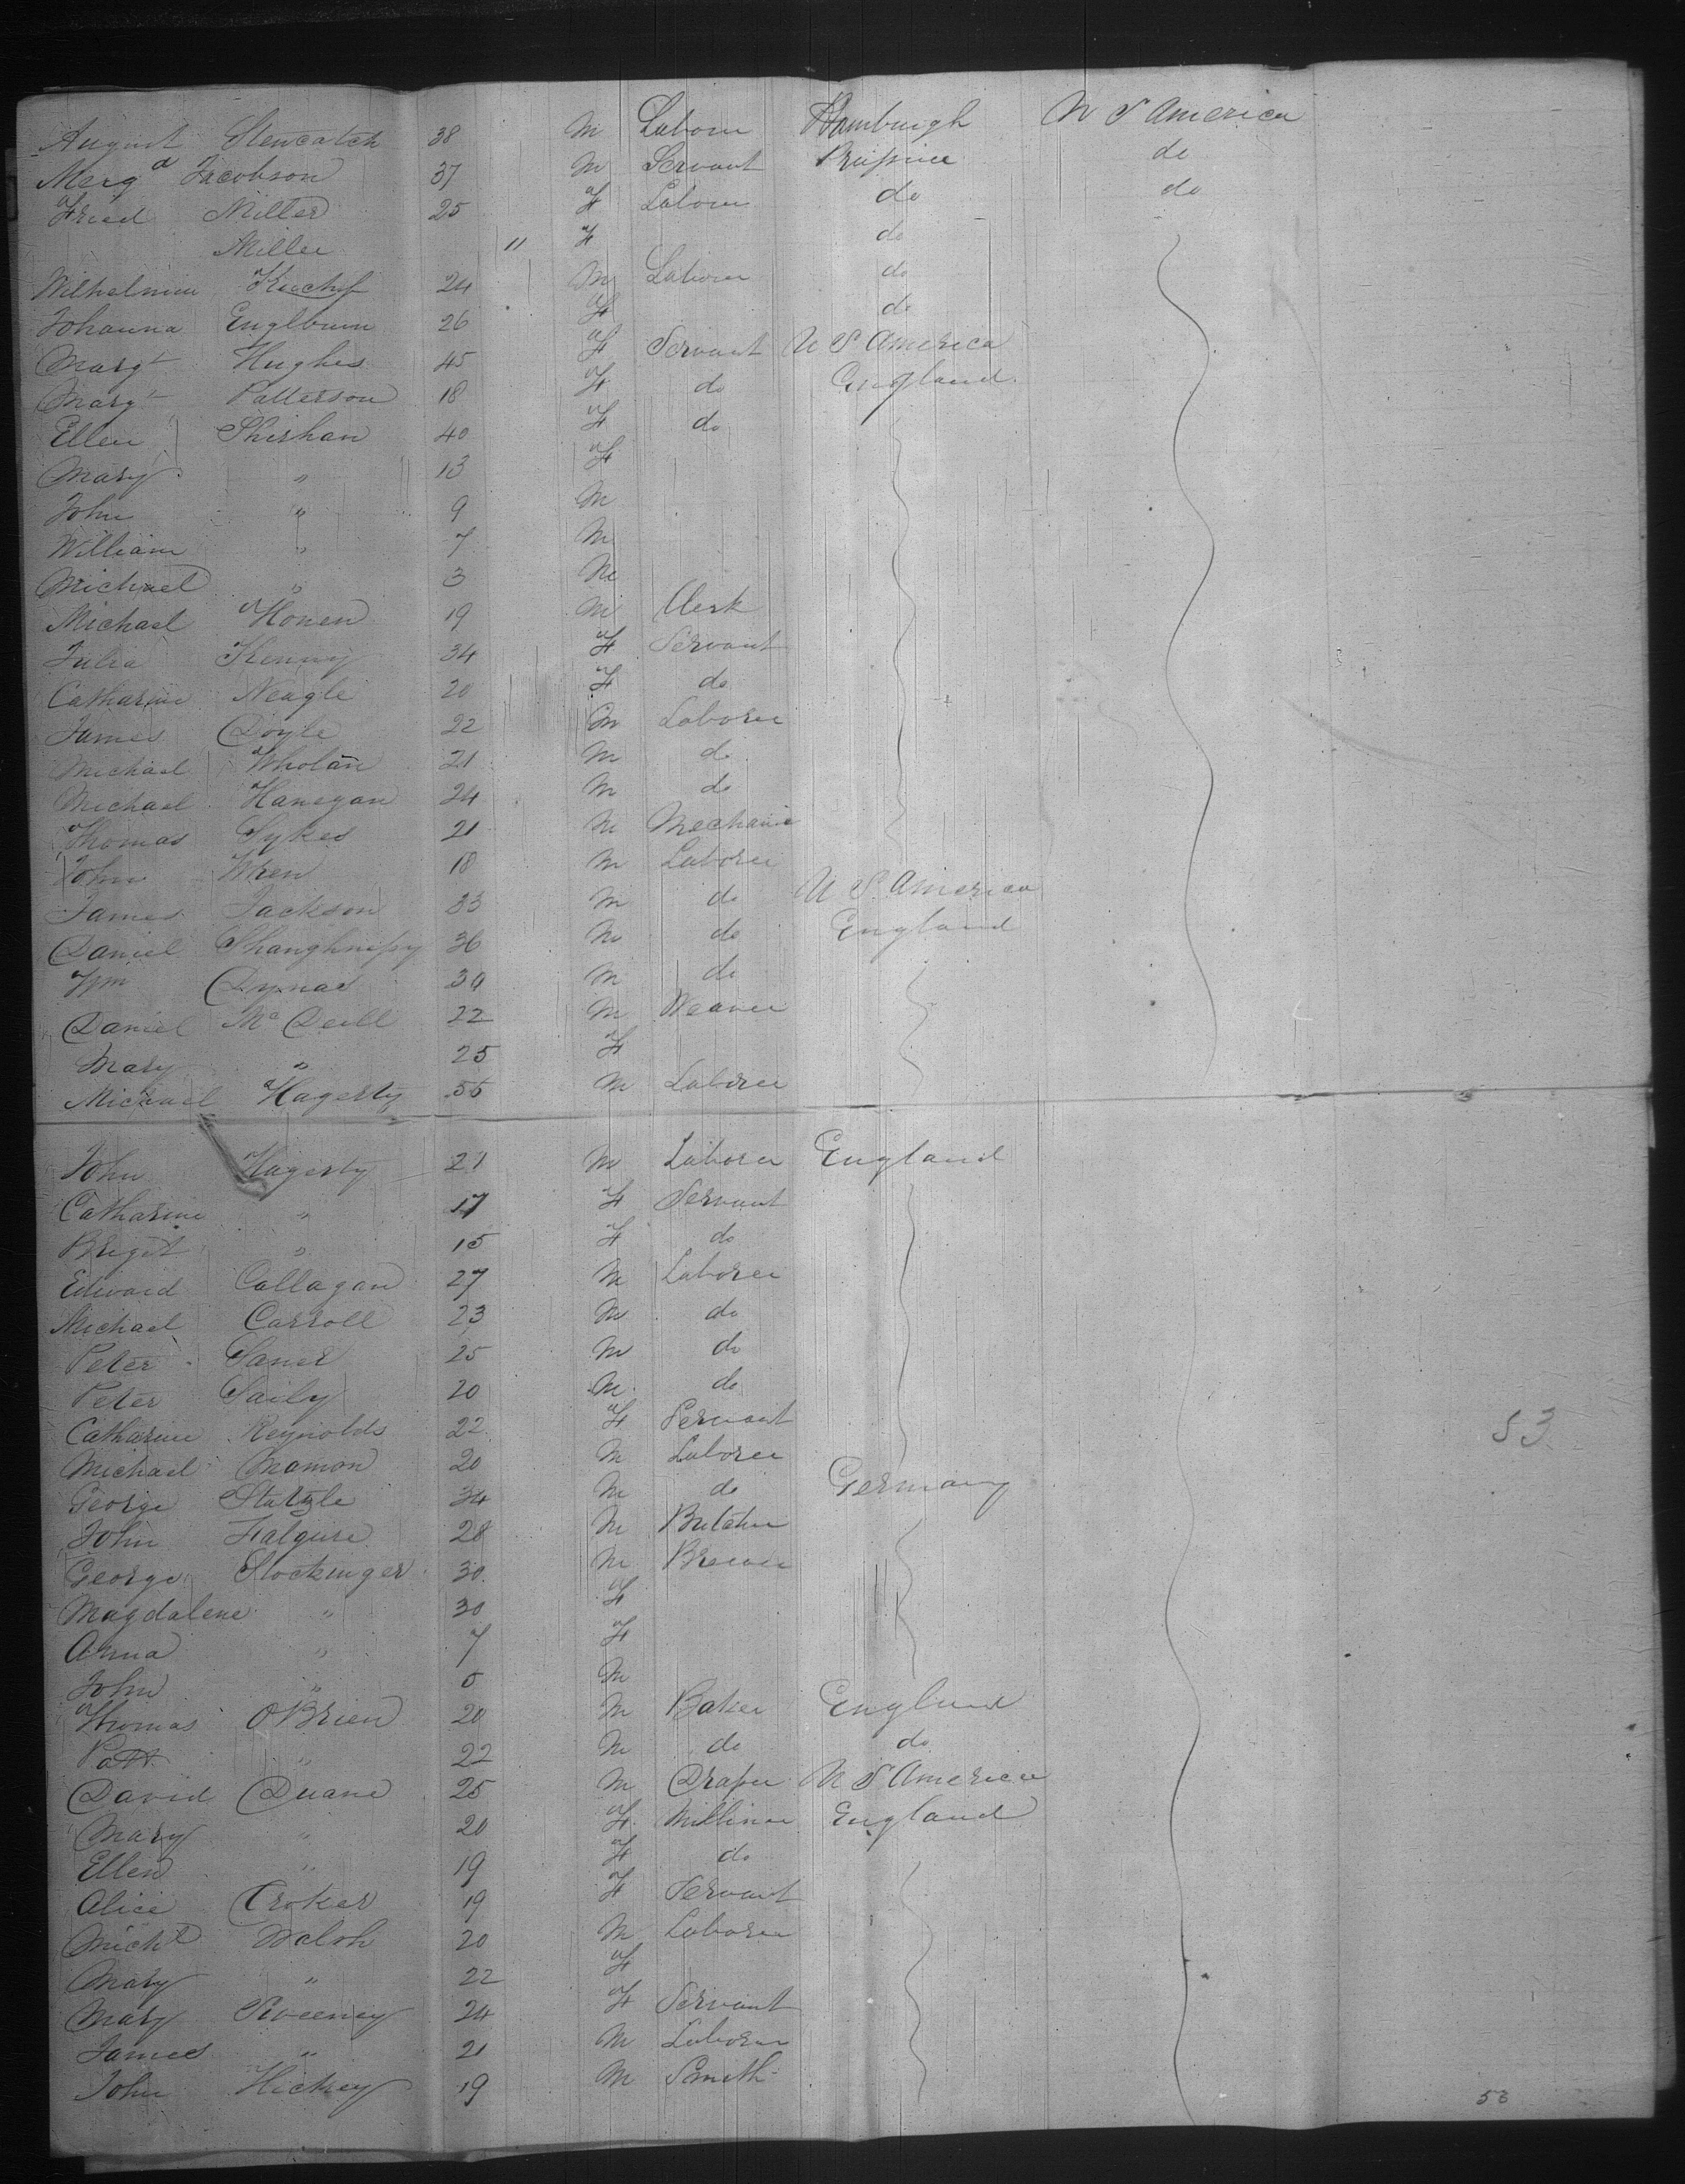 August Stencatch 38 M Laborer Hamburgh U S America
Marg d Jacobson 37 M Servant Prussia do
Fried Miller 25 F Laborer do do
Miller 11 F do
Wilhelmine 24 M Laborer do
Johanna Englbum 26 F do
Margt Hughes 45 F Servant U S America
Margt Patterson 18 F do England
Ellen Shishan 40 F do
Mary " 13 F
John " 9 M
William " 7 M
Michael " 3 M
Michael Honen 19 M Clerk
Julia Kenny 34 F Servant
Catharine Neagle 20 F do
James Doyle 22 M Laborer
Michael Wholan 21 M do
Michael Hanegan 24 M do
Thomas Sykes 21 M Mechanic
John Wren 18 M Laborer
James Jackson 33 M do U S America
Daniel Shanghnessy 36 M do England
Wm Dynas 30 M do
Daniel Mc Deill 22 M Weaver
Mary " 25 F
Michael Hagerty 55 M Laborer
John Hagerty 21 M Laborer England
Catharine " 17 F Servant
Briget " 15 F do
Edward Callagan 27 M Laborer
Michael Carroll 23 M do
Peter Saner 25 M do
Peter Saily 20 M do
Catharine Reynolds 22 F Servant
Michael Mamon 20 M Laborer
George Statzle 34 M do Germany
John Falgure 28 M Butcher
George Stockinger 30 M Brewer
Magdalene " 30 F
Anna " 7 F
John " 5 M
Thomas OBrien 20 M Baker England
Patt " 22 M do do
David Duane 25 M Draper U S America
Mary " 20 F Milliner England
Ellen " 19 F do
Alice Croker 19 F Servant
Michl Walsh 20 M Laborer
Mary " 22 F
Mary Sweeney 24 F Servant
James " 21 M Laborer
John Hickey 19 M Smith
53
53